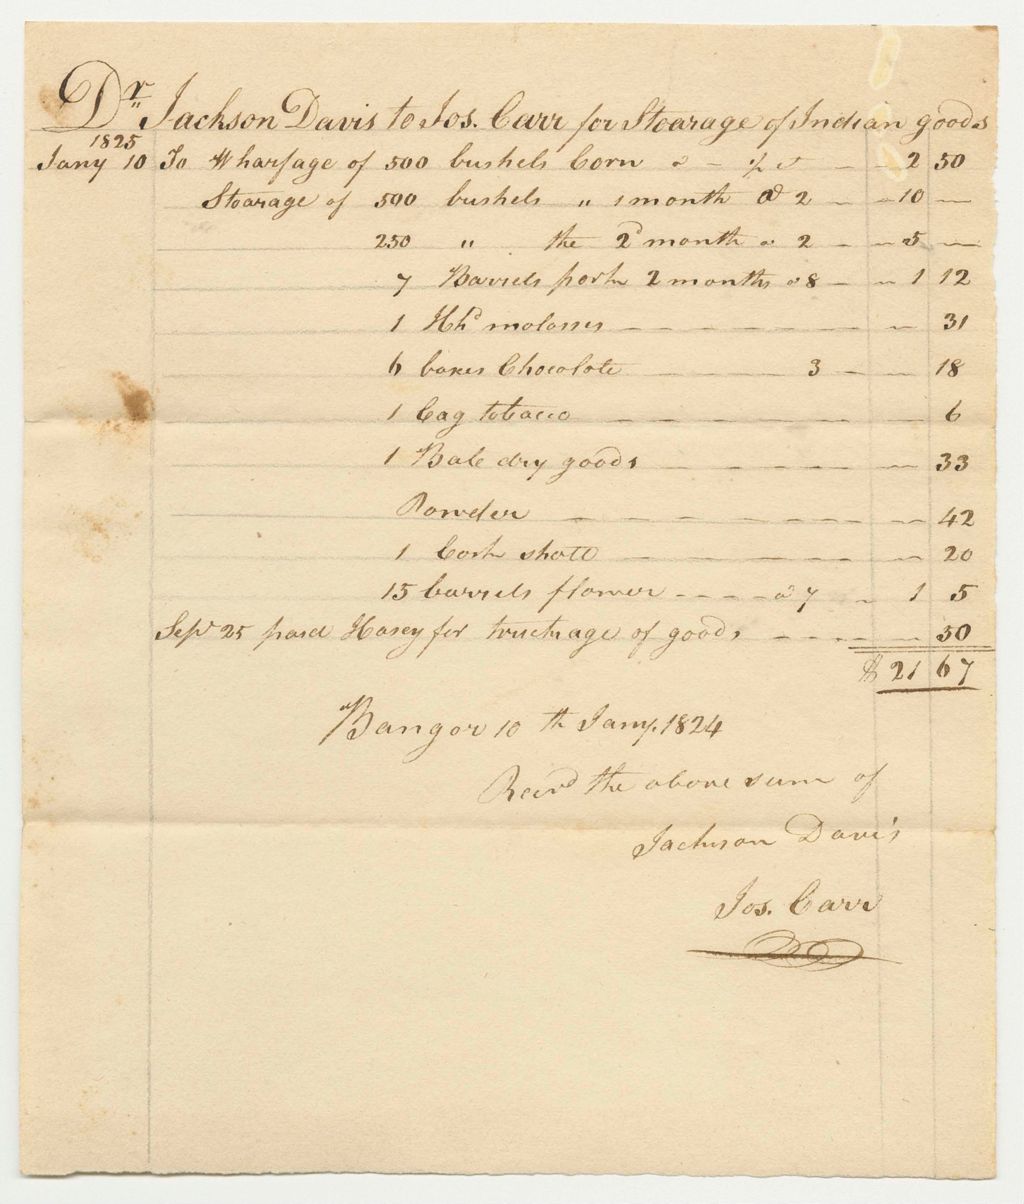 Dr. Jackson Davis to Jos. Carr for Stoarage of Indian goods
1825
Jany 10 To Wharfage of 500 bushels Corn a - ½ ct - - 2 50
Stoarage of 500 bushels " 1 month @ 2 - - 10 -
250 " the 2d month a 2 - - 5 -
7 Barrels pork 2 months a 8 - - 1 12
1 Hhd molasses - - - - 31
6 boxes Chocolate - - - 3 - 18
1 Cag tobacco - - - - 6
1 Bale dry goods - - - - 33
Powder - - - - 42
1 Cask shott - - - - 20
15 barrels flower - - - - a 7 - 1 5
Sepr 25 paid Hasey for truckage of goods - - - - 50
$ 21 67
Bangor 10th Jany. 1824
Recivd the above sum of
Jackson Davis
Jos. Carr